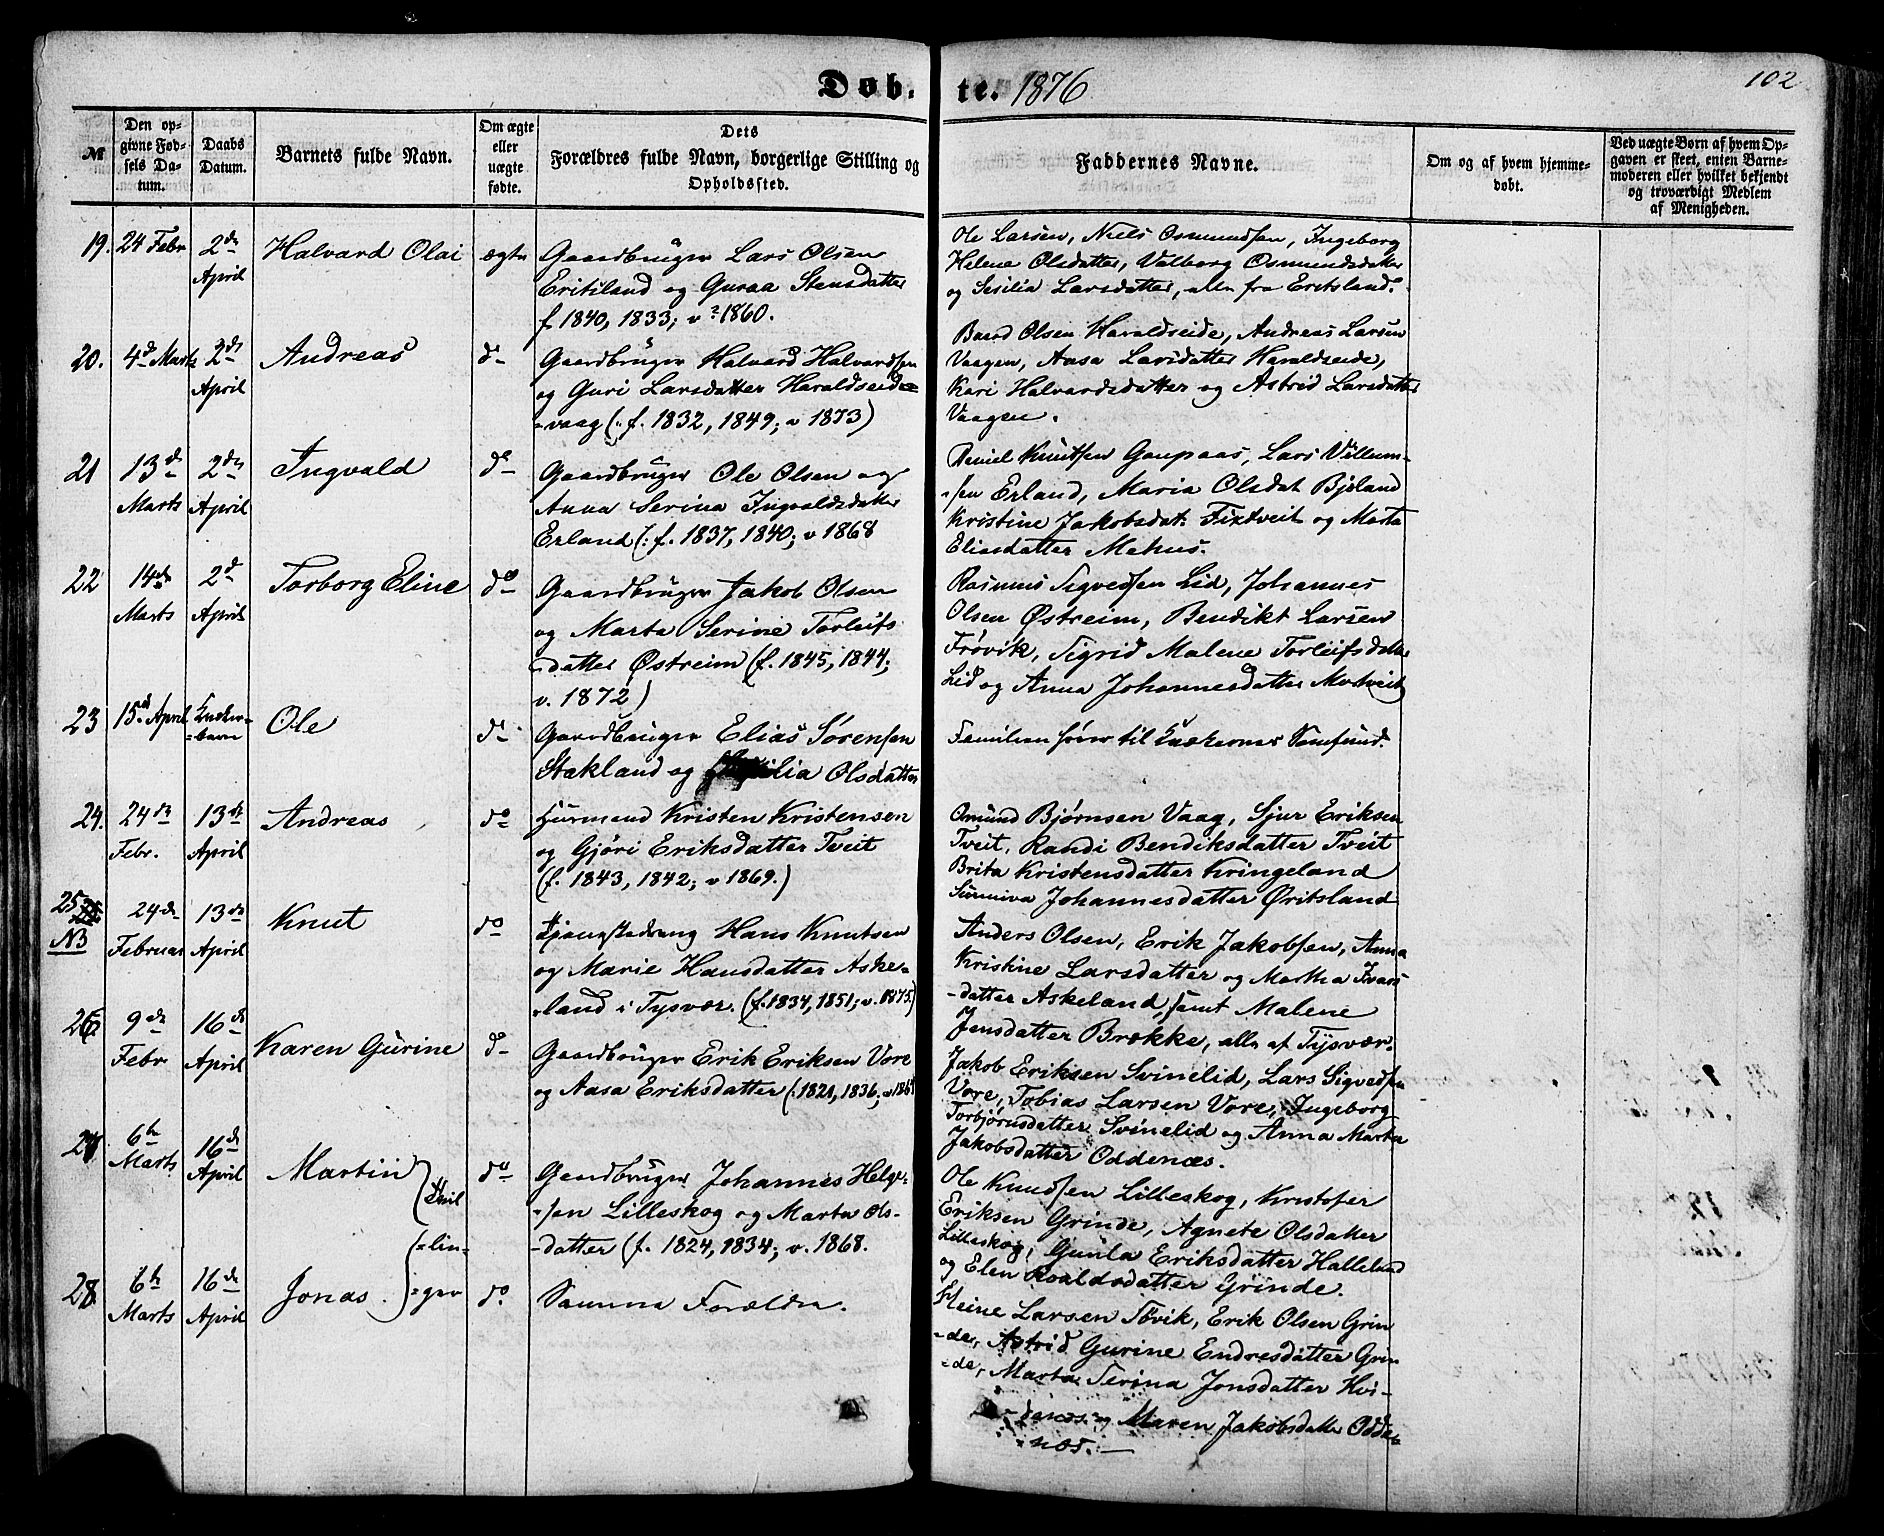 102
Døb. te. 1876
№
Den opgivne Fødsels Datum.
Daabs Datum.
Barnets fulde Navn.
Om ægte eller uægte fødte.
Dets Forældres fulde Navn, borgerlige Stilling og Opholdssted.
Faddernes Navne.
Om og af hvem hjemmedøbt.
Ved uægte Børn af hvem Opgaven er skeet, enten Barnemoderen eller hvilket bekjendt og troværdigt Medlem af Menigheden.
19. 24 Febr 2de April Halvard Olai ægte
Gaardbruger Lars Olsen
Eritsland og Guraa Stensdatter
f. 1840, 1833; v. 1860.
Ole Larsen, Niels Osmundsen, Ingeborg
Helene Olsdatter, Valborg Osmundsdatter
og Sesilia Larsdatter, alle fra Eritsland.
20. 4de Marts 2de April Andreas do
Gaardbruger Halvard Halvardsen
og Guri Larsdatter Haraldseide-
=vaag (: f. 1832, 1849; v 1873)
Baard Olsen Haraldseide, Andreas Larsen
Vaagen, Aasa Larsdatter Haraldseide,
Kari Halvardsdatter og Astrid Larsdatter
Vaagen.
21 13de Marts 2de April Ingvald do
Gaardbruger Ole Olsen og
Anna Serina Ingvaldsdatter
Erland (: f. 1837, 1840; v 1868
Daniel Knutsen Gaupaas, Lars Villum-
=sen Erland, Maria Olsdat Bjeland
Kristine Jakobsdat: Fixtveit og Marta
Eliasdatter Mehus.
22 14de Marts 2d April Torborg Eline do
Gaardbruger Jakob Olsen
og Marta Serine Torleifs
=datter Østreim (f. 1845, 1844;
v. 1872)
Rasmus Sigvedsen Lid, Johannes
Olsen Østreim, Bendikt Larsen
Frøvik, Sigrid Malene Torleifsdatter
Lid og Anna Johannesdatter Motveit
23 15de April Kvæker=barn Ole do
Gaardbruger Elias Sørensen
Stakland og Olsdatter
Familien hører til Kvækernes Samfund.
24. 24de Febr. 13de April Andreas do
Huusmand Kristen Kristensen
og Gjøri Eriksdatter Tveit
(f. 1843, 1842; v 1869.)
Omund Bjørnsen Vaag, Sjur Eriksen
Tveit, Randi Bendiksdatter Tveit
Brita Kristensdatter Kringeland
Surniva Johannesdatter Øvitsland
25 NB 24de Februar 13de April Knut do
Hans Knutsen
og Marie Hansdatter Aske-
=land i Tysvær. (f. 1834, 1851; v. 1875.)
Anders Olsen, Erik Jakobsen, Anna
Kristine Larsdatter og Martha Ivars
=datter Askeland, samt Malene
Jensdatter Brække, alle af Tysvær.
26 9de Febr 16de April Karen Gurine do
Gaardbruger Erik Eriksen Vore
og Aasa Eriksdatter (: 1821, 1836; v 186
Jakob Eriksen Svinelid, Lars Sigvedsen
Vore, Tobias Larsen Vore, Ingeborg
Torbjørnsdatter Svinelid og Anna Marta
Jakobsdatter Oddenæs.
27 6te Marts 16de April Martin (Tvil do
Gaardbruger Johannes Helge=
=sen Lilleskog og Marta Ols-
=datter (f. 1824, 1834; v. 1868.
Ole Knudsen Lilleskog, Kristofer
Eriksen Grinde, Agnete Olsdatter
Lilleskog, Gunla Eriksdatter Halleland
og Elen Roaldsdatter Grinde.
=lin=
28 6te Marts 16de April Jonas. =ger do.
Samma Forældre.
Steine Larsen Søvik, Erik Olsen Grin
=de, Astrid Gurine Endresdatter Grin
=de, Marta Serina Jonsdatter Hvi-
=denæs. og Maren Jakobsdatter Odde=
=næs.—